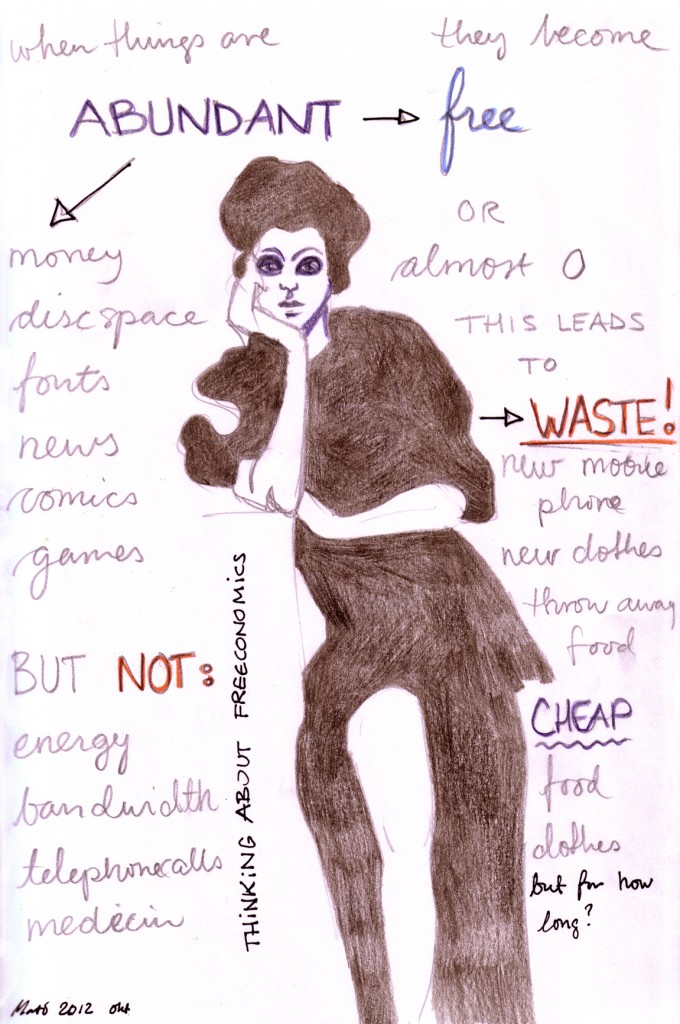 when things are
they become
ABUNDANT → free
OR
almost 0
THIS LEADS
TO
→ WASTE!
new mobile
phone
new clothes
throw away
food
CHEAP
food
clothes
but for how
long?
money
discspace
fonts
news
comics
games
BUT NOT:
energy
bandwidth
telephonecalls
medicin
THINKING ABOUT FREECONOMICS
2012 okt